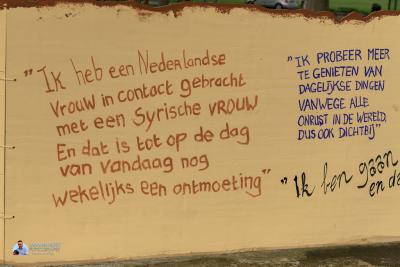 "Ik heb een Nederlandse
vrouw in contact gebracht
met een Syrische vrouw
En dat is tot op de dag
van vandaag nog
wekelijks een ontmoeting"
"IK PROBEER MEER
TE GENIETEN VAN
DAGELIJKSE DINGEN
VANWEGE ALLE
ONRUST IN DE WERELD,
DUS OOK DICHTBIJ"
"Ik ben gaan
en da